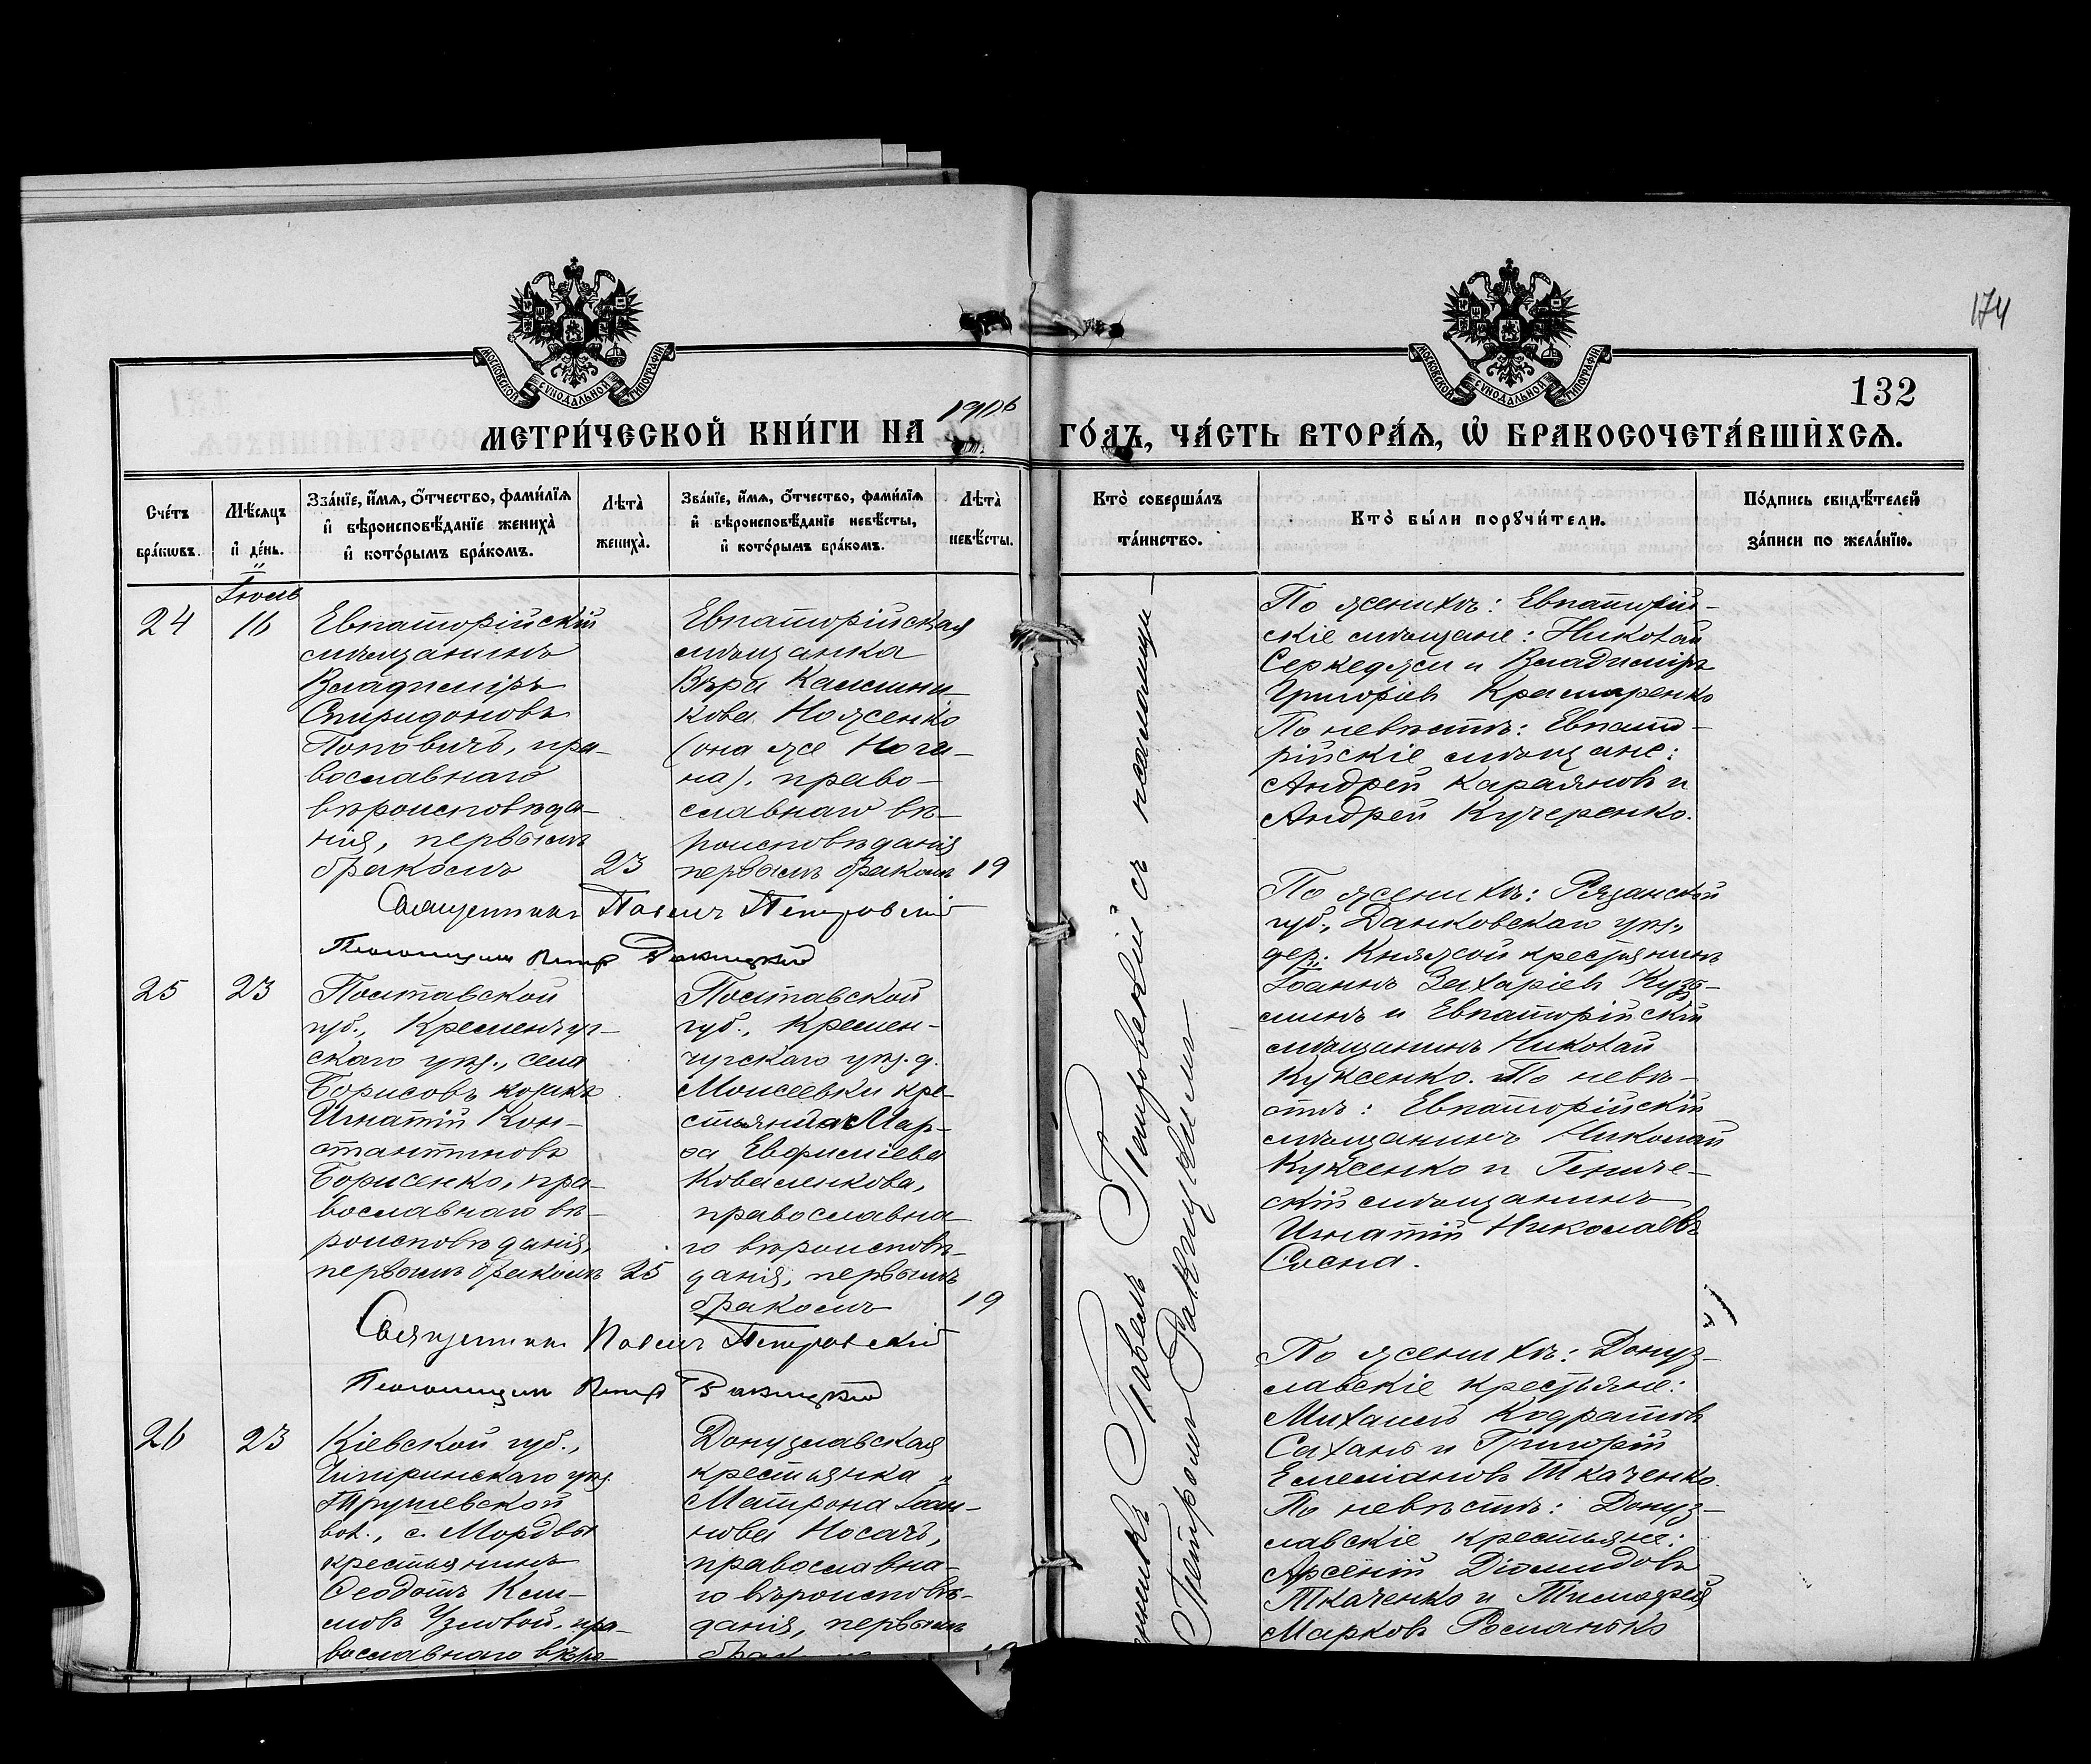 174
МОСКОВСКОЙ СѴНОДАЛЬНОЙ ТИПОГРАФІИ
МОСКОВСКОЙ СѴНОДАЛЬНОЙ ТИПОГРАФІИ
132
МЕТРИ́ЧЕСКОЙ КНИ́ГИ НА 1906 ГО́ДЪ, ЧА́СТЬ ВТОРА́Я, Ѡ БРАКОСОЧЕТА́ВШИХСЯ.
Сче́тъ бра́кѡвъ.
Мѣ́сяцъ и҆ де́нь.
Зва́нїе, и҆́мя, ѻ҆́тчество, фами́лїя
и҆ вѣроисповѣ́данїе жениха̀
и҆ кото́рымъ бра́комъ.
Лѣ́та̀ жениха̀.
Зва́нїе, и҆́мя, ѻ҆́тчество, фами́лїя
и҆ вѣроисповѣ́данїе невѣ́сты,
и҆ кото́рымъ бра́комъ.
Лѣ́та̀ невѣ́сты.
Кто̀ соверша́лъ
та́инство.
Кто̀ бы́ли порꙋчи́тели.
По́дпись свидѣ́телей
за́писи по жела́нїю.
24
Іюль
16
Евпаторійскій
мѣщанинъ
Владиміръ
Спиридоновъ
Поповичъ, пра-
вославнаго
вѣроисповѣда-
нія, первымъ
бракомъ
23
Евпаторійская
мѣщанка
Вѣра Каллини-
кова Ноженко
(она же Нога-
на), право-
славнаго вѣ-
роисповѣданія
первымъ бракомъ
19
Священникъ Павелъ Петровскій
Псаломщикъ Петръ Ракицкій
По женихѣ: Евпаторій-
скіе мѣщане: Николай
Серкеджи и Владиміръ
Григоріевъ Крамаренко
По невѣстѣ: Евпато-
рійскіе мѣщане:
Андрей Караяновъ и
Андрей Кучеренко.
25
23
Полтавской
губ., Кременчуг-
скаго уѣз., села
Борисовъ козакъ
Игнатій Кон-
стантиновъ
Борисенко, пра-
вославнаго вѣ-
роисповѣданія,
первымъ бракомъ
25
Полтавской
губ., Кремен-
чугскаго уѣз. д.
Моисеевки кре-
стьянка Мар-
ѳа Евфиміева
Коваленкова,
православна-
го вѣроисповѣ-
данія, первымъ
бракомъ
19
Священникъ Павелъ Петровскій
Псаломщикъ Петръ Ракицкій
По женихѣ: Рязанской
губ., Данковскаго уѣз.,
дер. Княжой крестьянинъ
Іоаннъ Захаріевъ Кузь-
минъ и Евпаторійскій
мѣщанинъ Николай
Куксенко. По невѣ-
стѣ: Евпаторійскій
мѣщанинъ Николай
Куксенко и Гениче-
скій мѣщанинъ
Игнатій Николаевъ
26
23
Кіевской губ.,
Чигиринскаго уѣз.
Трушевской
вол., с. Мордвы
крестьянинъ
Ѳеодотъ Кли-
мовъ Узловой, пра-
вославнаго вѣро-
Донузлавская
крестьянка
Матрона Іоан-
нова Носачъ,
православна-
го вѣроисповѣ-
данія, первымъ
По женихѣ: Донуз-
лавскіе крестьяне:
Михаилъ Кодратовъ
Сахань и Григорій
Емеліановъ Ткаченко.
По невѣстѣ: Донуз-
лавскіе крестьяне:
Арсеній Діомидовъ
Ткаченко и Тимоѳей
Марковъ Романько
Павелъ Петровскій съ псаломщи-
Петромъ Ракицкимъ